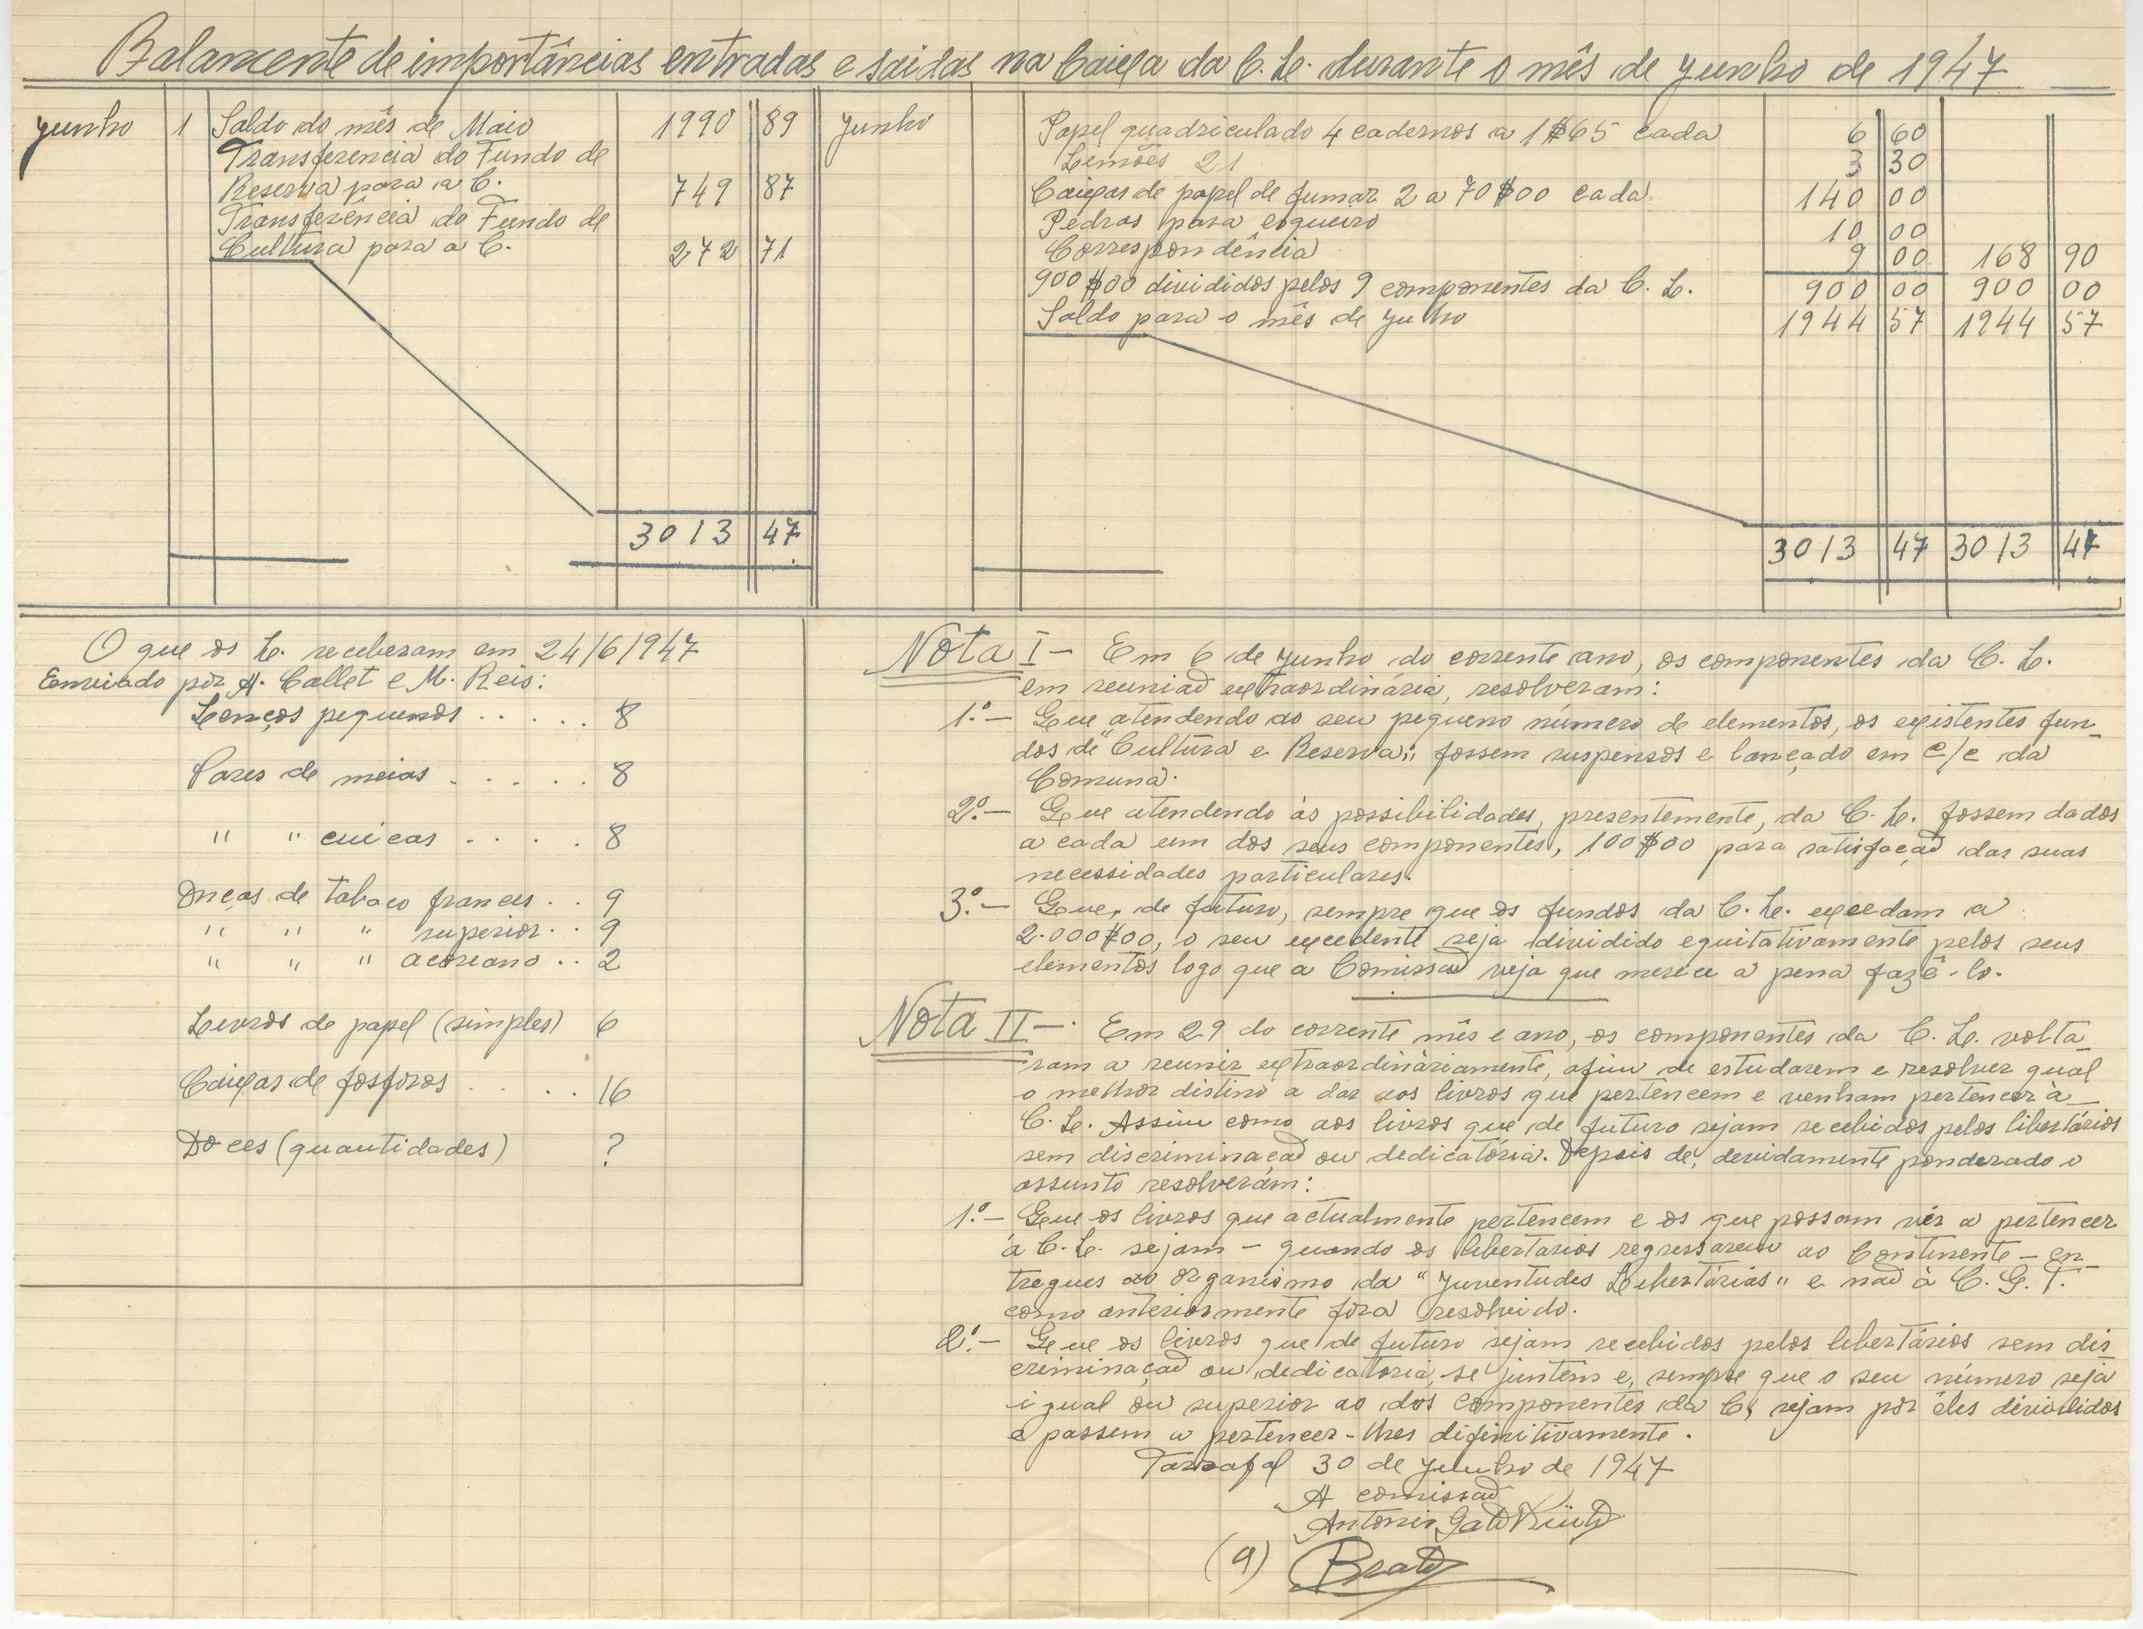 Balancente de importâncias entradas e saidas na Caixa da C. L. durante o mês de Junho de 1947
Junho 1 Saldo do mês de Maio 1990 89
Transferencia do Fundo de
Reserva para a C. 749 87
Transferência do Fundo de
Cultura para a C. 272 71
3013 47
Junho Papel quadriculado 4 cadernos a 1$65 cada 6 60
Limões 21 3 30
Caixas de papel de fumar 2 a 70$00 cada 140 00
Pedras para isqueiro 10 00
Correspondência 9 00 168 90
900$00 divididos pelos 9 componentes da C. L. 900 00 900 00
Saldo para o mês de Julho 1944 57 1944 57
3013 47 3013 47
O que os L. receberam em 24/6/1947
Enviado por A. Callet e M. Reis:
Lenços pequenos . . . . . 8
Pares de meias . . . . . 8
" " cuicas . . . . 8
Onças de tabaco frances . . 9
" " " superior . . 9
" " " acoreano . . 2
Livros de papel (simples) 6
Caixas de fosforos . . . . 16
Doces (quantidades) ?
Nota I - Em 6 de Junho do corrente ano, os componentes da C. L.
em reunião extraordinária, resolveram:
1.º - Que atendendo ao seu pequeno número de elementos, os existentes fun-
dos de "Cultura e Reserva" fossem suspensos e lançado em c/c da
Comuna.
2.º - Que atendendo às possibilidades, presentemente, da C. L. fossem dados
a cada um dos seus componentes, 100$00 para satisfação das suas
necessidades particulares.
3.º - Que, de futuro, sempre que os fundos da C. L. excedam a
2.000$00, o seu excedente seja dividido equitativamente pelos seus
elementos logo que a Comissão veja que merece a pena fazê-lo.
Nota II - Em 29 do corrente mês e ano, os componentes da C. L. volta-
ram a reunir extraordináriamente, afim de estudarem e resolver qual
o melhor distino a dar aos livros que pertencem e venham pertencer à
C. L. Assim como aos livros que de futuro sejam recebidos pelos libertários
sem discriminação ou dedicatória. Depois de, devidamente ponderado o
assunto resolveram:
1.º - Que os livros que actualmente pertencem e os que possam vir a pertencer
à C. L. sejam - quando os libertarios regressarem ao Continente - en-
tregues ao organismo da "Juventudes Libertárias" e não à C. G. T.
como anteriormente fora resolvido.
2.º - Que os livros que de futuro sejam recebidos pelos libertários sem dis-
criminação ou dedicatoria, se juntem e, sempre que o seu número seja
igual ou superior ao dos componentes da C, sejam por êles divididos
e passem a pertencer-lhes difinitivamente.
Tarrafal 30 de Junho de 1947
A comissão
Antonio Gato Pinto
(a)